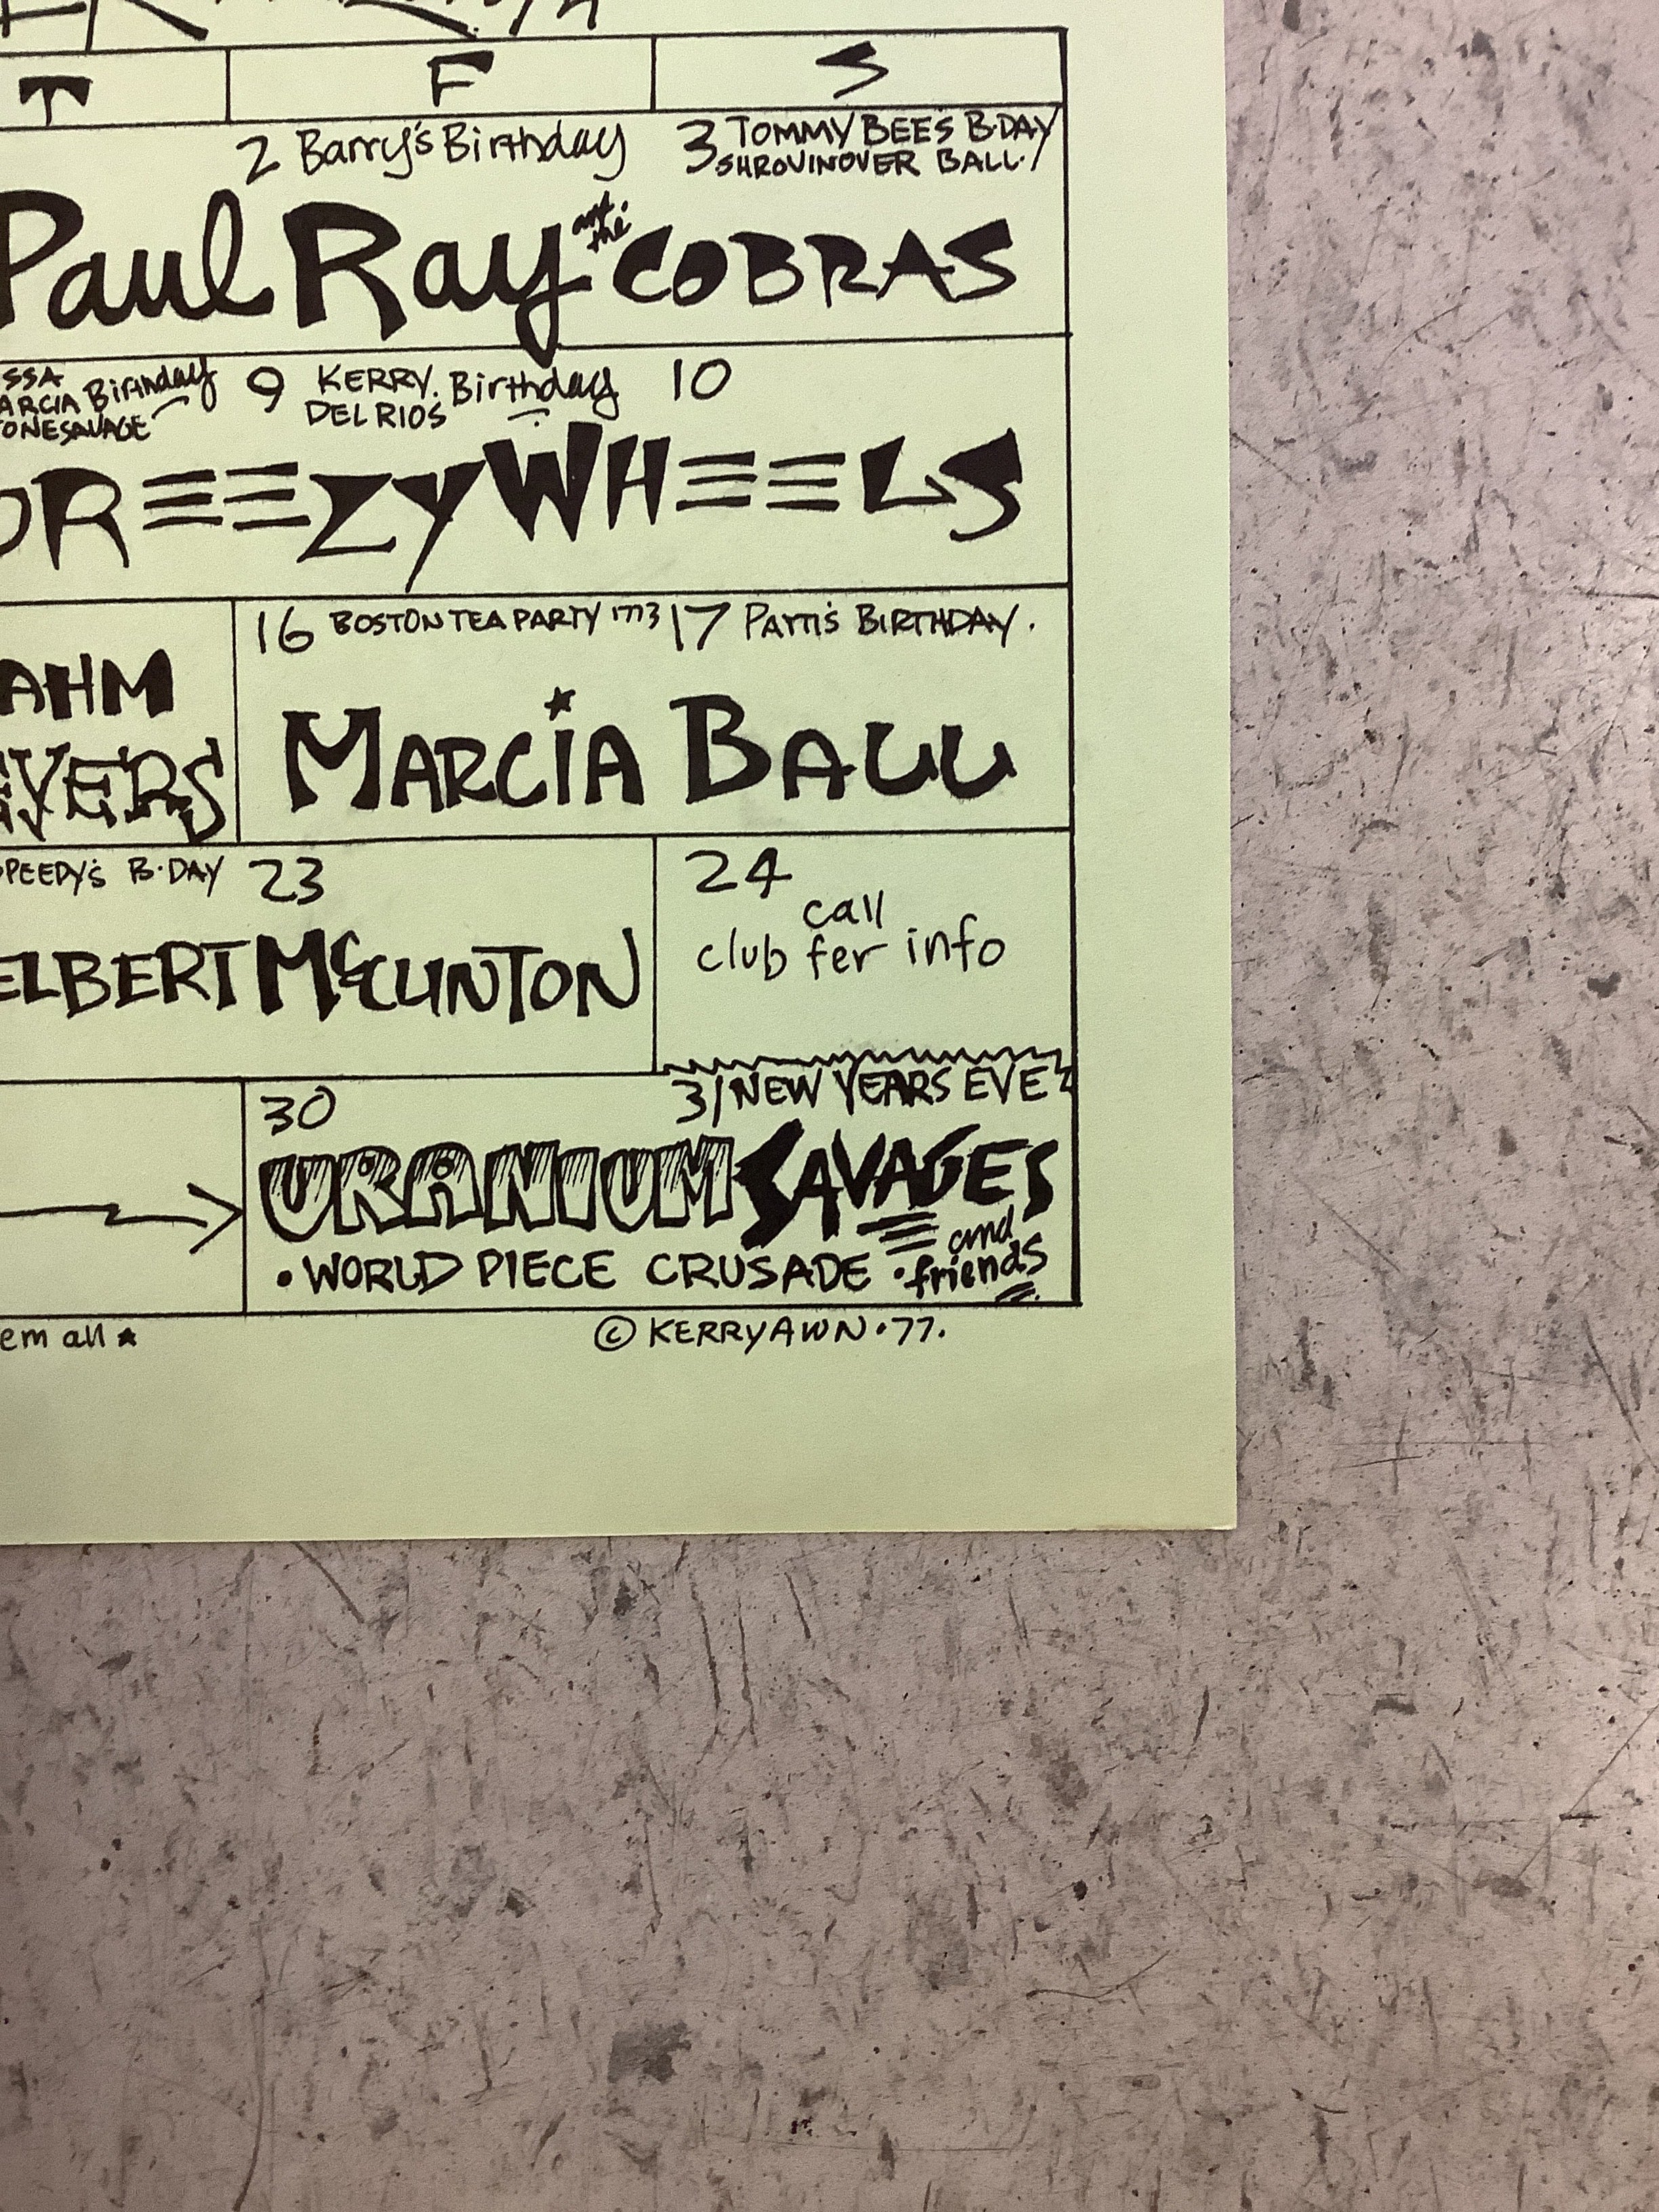 T F S
2 Barry's Birthday 3 TOMMY BEE'S B·DAY
SHROVINOVER BALL!
Paul Ray and the COBRAS
SSA
ARCIA Birthday 9 KERRY Birthday 10
ONESAVAGE DEL RIOS
REEZY WHEELS
16 BOSTON TEA PARTY 1773 17 PATTI'S BIRTHDAY.
AHM
EVERS
MARCIA BALL
PEEDY'S B·DAY 23 24
call
club fer info
ELBERT McCLINTON
30 31 NEW YEARS EVE
URANIUM SAVAGES
and
• WORLD PIECE CRUSADE • friends
em all ★ © KERRY AWN • 77.